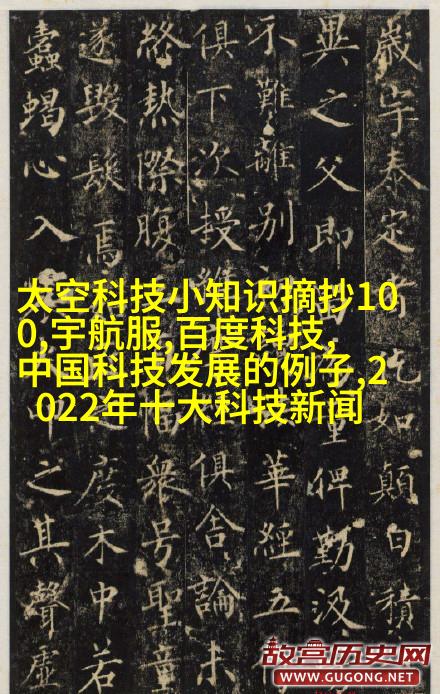 歲宇泰定者如顛白積
異之父即俾勤汲
不難離別華經五
俱下次授俱舍論未
終熱際腹恉衆号聖童
遂毀髮焉度木中若
蠹蝎心入之其聲虛
太空科技小知识摘抄10
0,宇航服,百度科技,
中国科技发展的例子,2
022年十大科技新闻
故宫历史网
WWW.GUGONG.NET